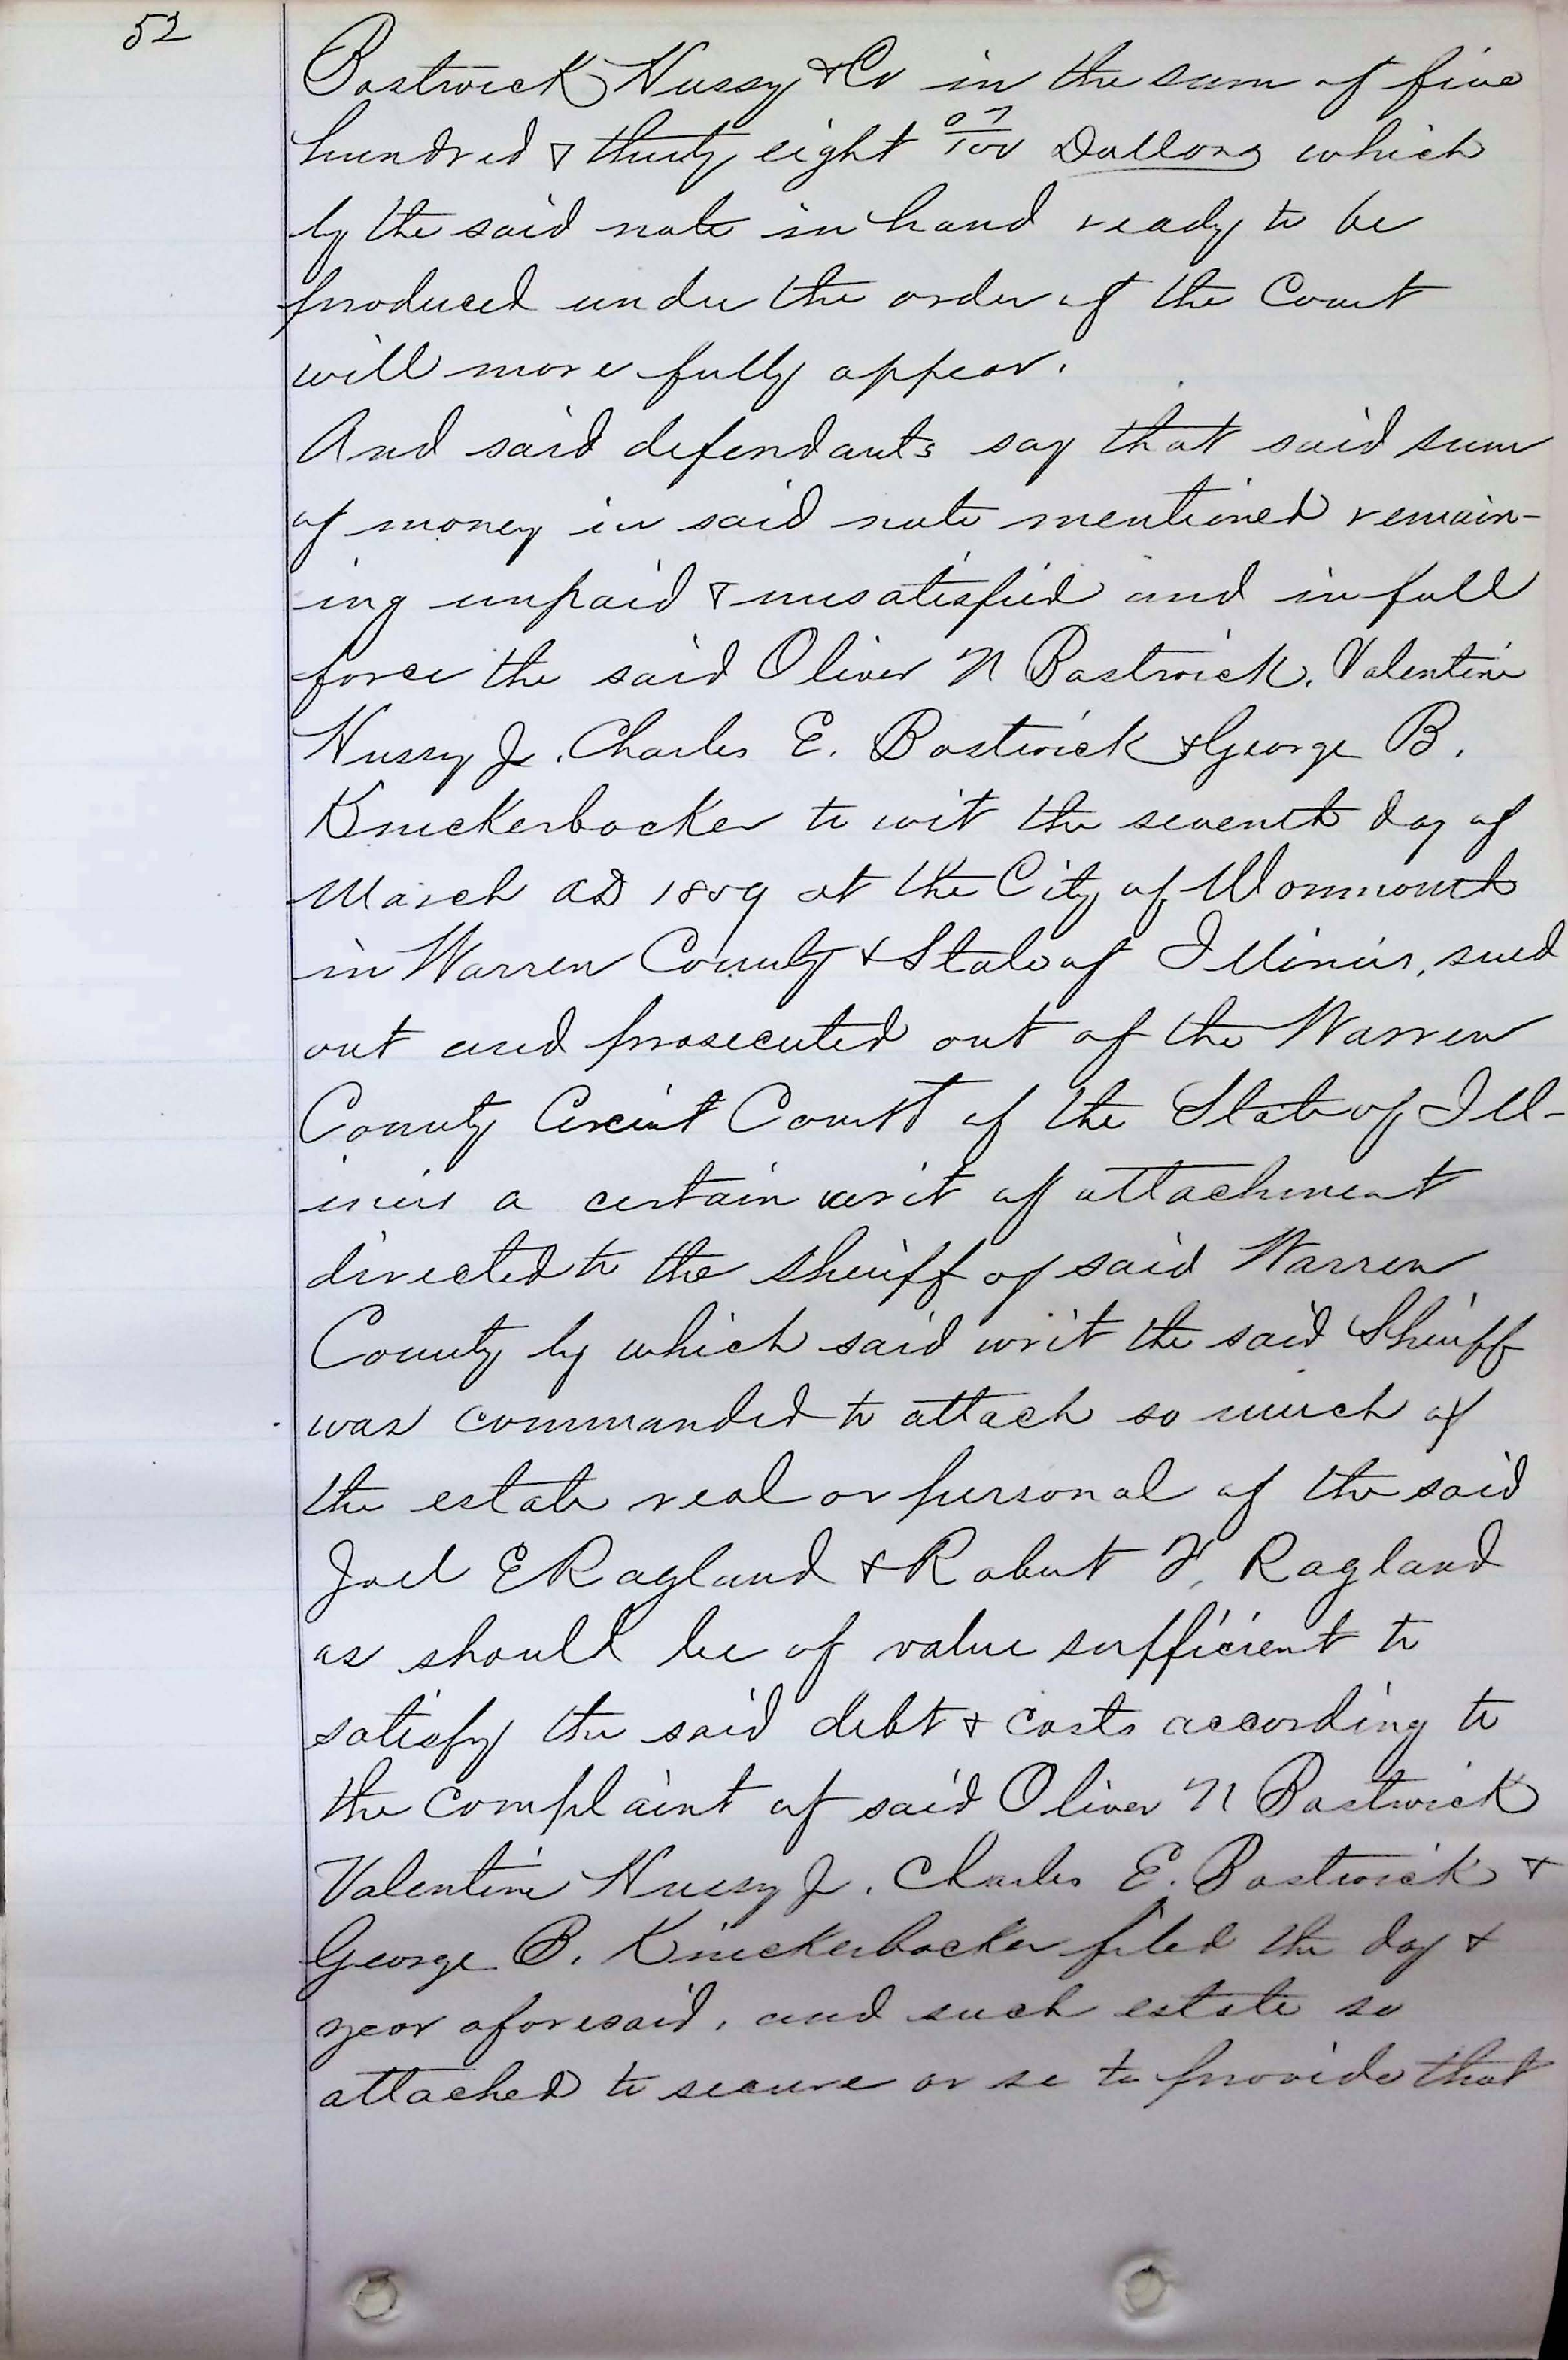 52
Bostwick Hussy & Co in the sum of five
hundred & thirty eight 07/100 Dollars which
by the said note in hand ready to be
produced under the order of the Court
will more fully appear.
And said defendants say that said sum
of money in said note mentioned remain-
ing unpaid & unsatisfied and in full
force the said Oliver N Bostwick, Valentine
Hussy Jr. Charles E. Bostwick & George B.
Knickerbocker to wit the seventh day of
March AD 1859 at the City of Monmouth
in Warren County & State of Illinois, sued
out and prosecuted out of the Warren
County Circuit Court of the State of Ill-
inois a certain writ of attachment
directed to the Sheriff of said Warren
County by which said writ the said Sheriff
was commanded to attach so much of
the estate real or personal of the said
Joel E Ragland & Robert F. Ragland
as should be of value sufficient to
satisfy the said debt & costs according to
the complaint of said Oliver N Bostwick
Valentine Hussy Jr. Charles E. Bostwick &
George B. Knickerbocker filed the day &
year aforesaid, and such estate so
attached to secure or so to provide that